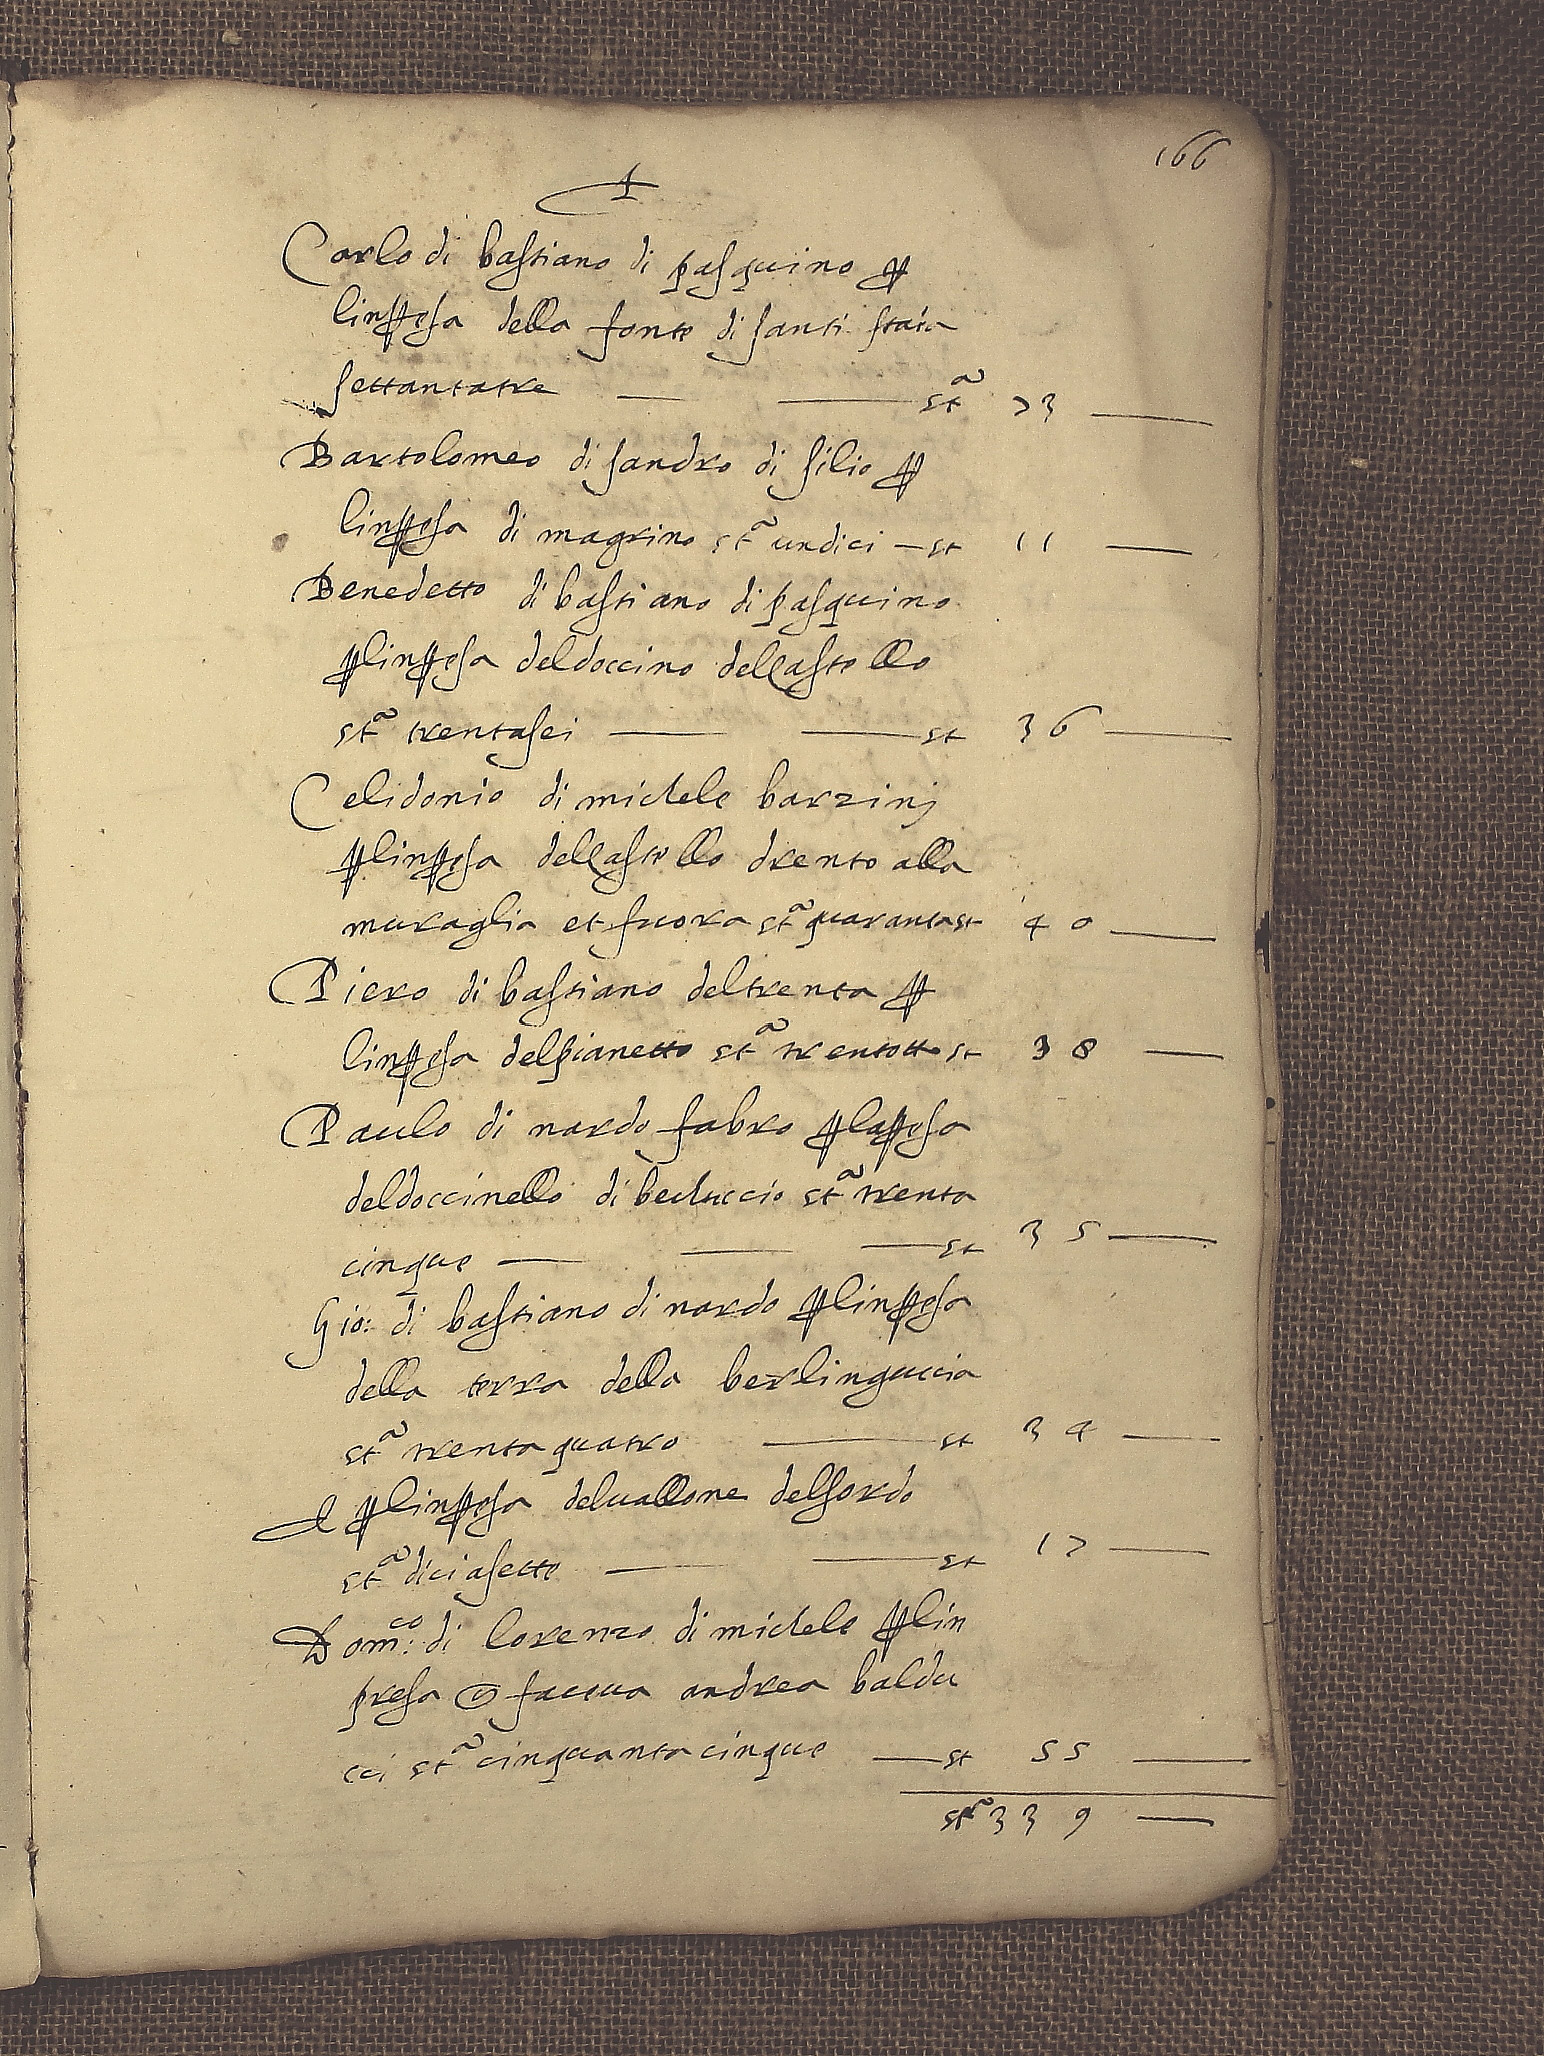 166
Carlo di bastiano di pasquino p
linpresa della fonte di santi staia
settantatre — — sta 73 —
Bartolomeo di sandro di silio p
linpresa di magrino sta undici — st 11 —
Benedetto di bastiano di pasquino
plinpresa deldoccino delCastello
sta trentasei — — st 36 —
Celidonio di michele barzinj
plinpresa delCastello drento alla
muraglia et fuora sta quaranta st 40 —
Piero di bastiano deltrenta p
linpresa delpianetto sta trentotto st 38 —
Paulo di nardo fabro plapresa
deldoccinello di bechuccio sta trenta
cinque — — — st 35 —
Gio: di bastiano di nardo plinpresa
della terra della berlinguccia
sta trentaquatro — st 34 —
E plinpresa deluallone delsordo
sta diciasette — — st 17 —
Domco: di lorenzo di michele plin
presa andrea baldu
cci sta cinquantacinque — st 55 —
sta 339 —